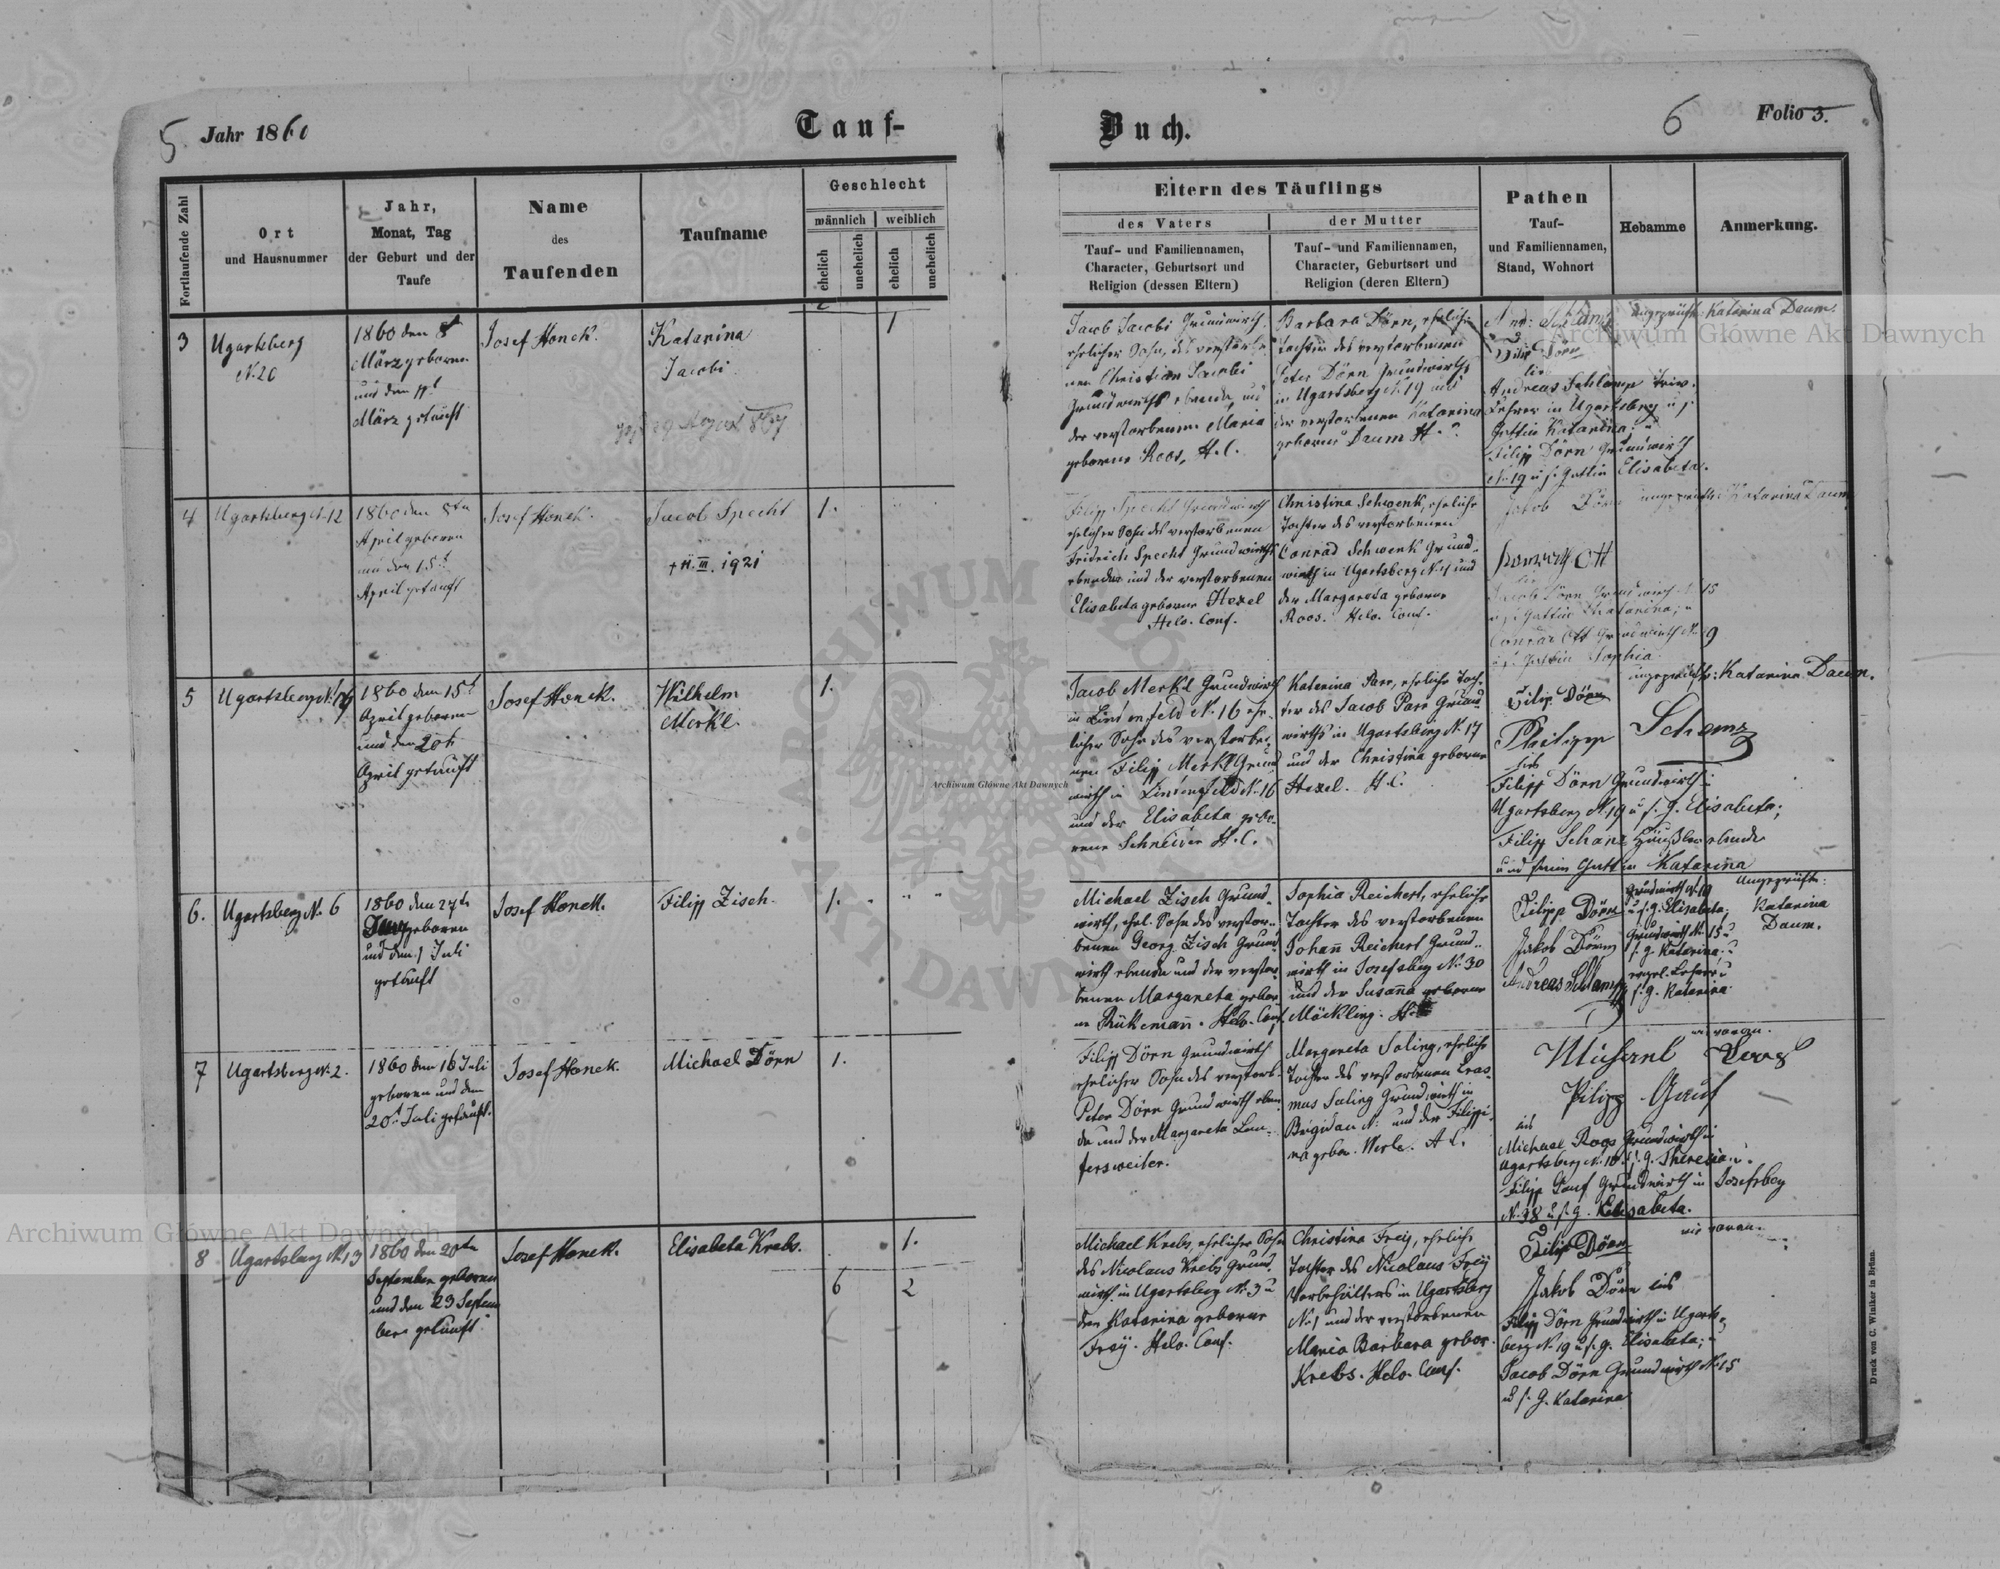 5. Jahr 1860
Tauf-
Buch.
6 Folio 3.
Fortlaufende Zahl
Ort
und Hausnummer
Jahr,
Monat, Tag
der Geburt und der
Taufe
Name
des
Taufenden
Taufname
Geschlecht
männlich weiblich
ehelich
unehelich
ehelich
unehelich
Eltern des Täuflings
des Vaters
Tauf- und Familiennamen,
Character, Geburtsort und
Religion (dessen Eltern)
der Mutter
Tauf- und Familiennamen,
Character, Geburtsort und
Religion (deren Eltern)
Pathen
Tauf-
und Familiennamen,
Stand, Wohnort
Hebamme
Anmerkung.
3
Ugartsberg
N. 20
1860 den 8t
März geboren
und den
März getauft
Josef Honek.
Katarina
Jacobi
1
Jacob Jacobi Grundwirth,
ehelicher Sohn, des verstorbe-
nen Christian Jacobi
Grundwirths ebenda, und
der verstorbenen Maria
geborne Roos, H. C.
Barbara Dörn, eheliche
Tochter des verstorbenen
Peter Dörn Grundwirths
in Ugartsberg N. 19 und
der verstorbenen Katarina
geborne Daum H.
Filip Dörn
Andreas Schlamp
Lehrer in Ugartsberg u. s.
Gattin Katarina: u
Filipp Dörn Grundwirth
N. 19 u. s. Gattin Elisabeta.
ungeprüft: Katarina Daum.
4
Ugartsberg N. 12
1860 den 8ten
April geboren
und den 15t
April getauft
Josef Honek.
Jacob Specht
† 11. III. 1921
1.
Filipp Specht Grundwirth
ehelicher Sohn des verstorbenen
Fridrich Specht Grundwirths
ebenda und der verstorbenen
Elisabeta geborne Hexel
Helv. Conf.
Christina Schwenk, eheliche
Tochter des verstorbenen
Conrad Schwenk Grund-
wirth in Ugartsberg N. 1 und
der Margareta geborne
Roos. Helv. Conf.
Jakob Dörn
Konrad Ott
Jacob Dörn Grundwirth N. 15
u. s. Gattin Katarina; u
Conrad Ott Grundwirth N. 9
u. s. Gattin Sophia.
ungeprüft: Katarina Daum
5
Ugartsberg N.
1860 den 15t
April geboren
und den 20t
April getauft
Josef Honek.
Wilhelm
Merkl.
1.
Jacob Merkl Grundwirth
in Lindenfeld N. 16 ehe-
licher Sohn des verstorbe-
nen Filipp Merkl Grund-
wirth in Lindenfeld N. 16
und der Elisabeta gebo-
rene Schneider H. C.
Katarina Parr, eheliche Toch-
ter des Jacob Parr Grund-
wirths in Ugartsberg N. 17
und der Christina geborne
Hexel. H. C.
Filip Dörn
Philipp Schanz
Filipp Dörn Grundwirth in
Ugartsberg N. 19 u. s. G. Elisabeta;
Filipp Schanz Häußler ebenda
und seine Gattin Katarina
ungeprüft: Katarina Daum.
6.
Ugartsberg N. 6
1860 den 27t
geboren
und den 1 Juli
getauft
Josef Honek.
Filipp Zisch.
1.
Michael Zisch Grund-
wirth, ehel. Sohn des verstor-
benen Georg Zisch Grund-
wirth ebenda und der verstor-
benen Margareta gebor-
ne Rükemann. Helv. Conf.
Sophia Reichert, eheliche
Tochter des verstorbenen
Johann Reichert Grund-
wirth in Josefsberg N. 30
und der Susanna geborne
Möckling. H.
Filipp Dörn
Jakob Dörn
Andreas Schlamp
Grundwirth N. 19
u. s. G. Elisabeta;
Grundwirth N. 15 u
s. G. Katarina; u
evgel. Lehrer u
s. G. Katarina.
Ungeprüft:
Katarina
Daum.
7
Ugartsberg N. 2.
1860 den 16 Juli
geboren und den
20t Juli getauft.
Josef Honek.
Michael Dörn
1.
Filipp Dörn Grundwirth
ehelicher Sohn des verstorb.
Peter Dörn Grundwirth eben-
da und der Margareta Lau-
tersweiler.
Margareta Saling, eheliche
Tochter des verstorbenen Eras-
mus Saling Grundwirth in
Brigidau N. und der Filippi-
na gebor. Werle. H. C.
wie voran.
Pilipp Gauf
Michael Roos Grundwirth in
Ugartsberg N. 10 u. s. G. Theresia u.
Filipp Gauf Grundwirth in Josefsberg
N. 38 u. s. G. Elisabeta.
8
Ugartsberg N. 13
1860 den 20ten
September geboren
und den 23 Septem-
ber getauft
Josef Honek.
Elisabeta Krebs.
1.
6 2
Michael Krebs, ehelicher Sohn
des Nicolaus Krebs Grund-
wirth in Ugartsberg N. 3 u
der Katarina geborne
Frey. Helv. Conf.
Christina Frey, eheliche
Tochter des Nicolaus Frey
Vorbehälters in Ugartsberg
N. 1 und der verstorbenen
Maria Barbara gebor.
Krebs. Helv. Conf.
Filip Dörn
Jakob Dörn
Filipp Dörn Grundwirth in Ugarts-
berg N. 19 u. s. G. Elisabeta; u
Jacob Dörn Grundwirth N. 15
u. s. G. Katarina
wie voran.
Druck von C. Winiker in Brünn.
Archiwum Główne Akt Dawnych
Archiwum Główne Akt Dawnych
Archiwum Główne Akt Dawnych